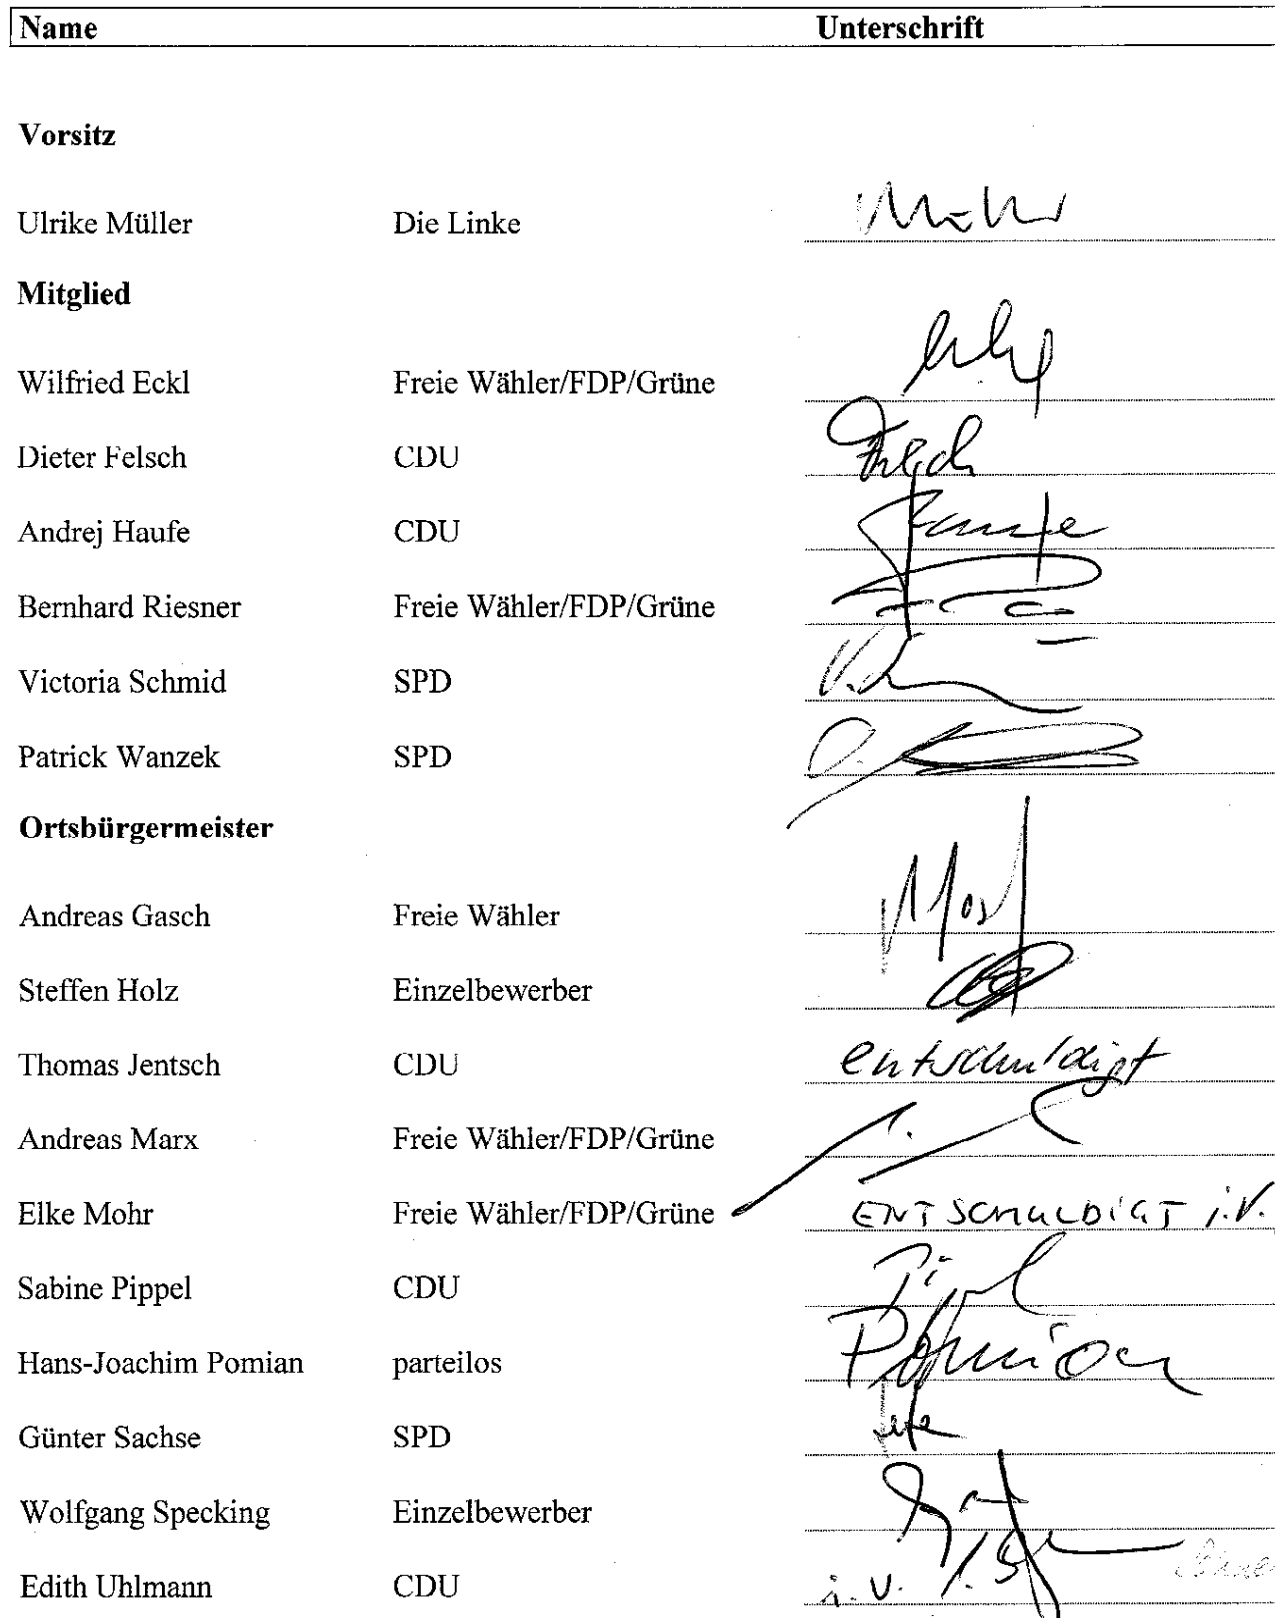 Name Unterschrift
Vorsitz
Ulrike Müller Die Linke
Mitglied
Wilfried Eckl Freie Wähler/FDP/Grüne
Dieter Felsch CDU
Andrej Haufe CDU Haufe
Bernhard Riesner Freie Wähler/FDP/Grüne
Victoria Schmid SPD
Patrick Wanzek SPD
Ortsbürgermeister
Andreas Gasch Freie Wähler
Steffen Holz Einzelbewerber
Thomas Jentsch CDU entschuldigt
Andreas Marx Freie Wähler/FDP/Grüne
Elke Mohr Freie Wähler/FDP/Grüne ENTSCHULDIGT i.V.
Sabine Pippel CDU
Hans-Joachim Pomian parteilos Pomian
Günter Sachse SPD
Wolfgang Specking Einzelbewerber
Edith Uhlmann CDU i.V.